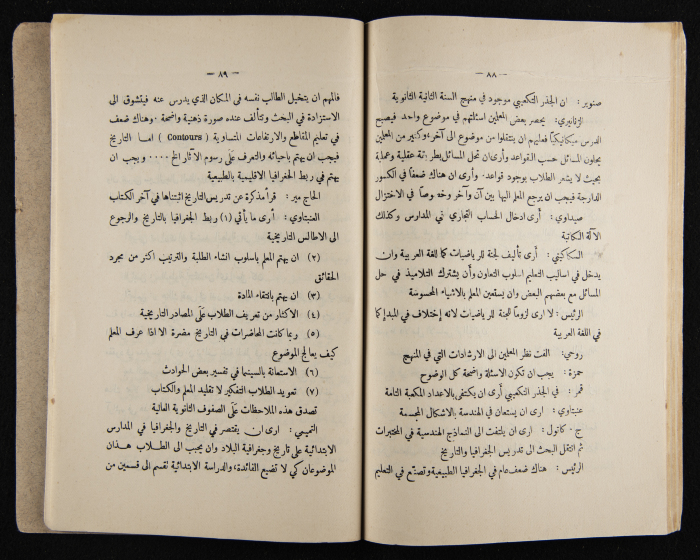 — ٨٨ —
صنوبر : ان الجذر التكعيبي موجود في منهج السنة الثانية الثانوية
يحصر بعض المعلمين اسئلتهم في موضوع واحد فيصبح
الدرس ميكانيكياً فعليهم ان ينتقلوا من موضوع الى آخر؛ وكثير من المعلمين
يحلون المسائل حسب القواعد وأرى ان تحل المسائل بطريقة عقلية وعملية
بحيث لا يشعر الطلاب بوجود قواعد. وأرى ان هناك ضعفاً في الكسور
الدارجة فيجب ان يرجع المعلم اليها بين آن وآخر وخصوصاً في الاختزال
صيداوي : أرى ادخال الحساب التجاري في المدارس وكذلك
الآلة الكاتبة
السكاكيني : أرى تأليف لجنة للرياضيات كما للغة العربية وان
يدخل في اساليب التعليم اسلوب التعاون وأن يشترك التلاميذ في حل
المسائل مع بعضهم البعض وان يستعين المعلم بالاشياء المحسوسة
الرئيس : لا ارى لزوماً للجنة للرياضيات لانه إختلاف في المبدإ كما
في اللغة العربية
روحي : الفت نظر المعلمين الى الارشادات التي في المنهج
حمزة : يجب ان تكون الاسئلة واضحة كل الوضوح
قمر : في الجذر التكعيبي أرى ان يكتفى بالاعداد المكعبة التامة
عنبتاوي : ارى ان يستعان في الهندسة بالاشكال المجسمة
ج . كاتول : ارى ان يلتفت الى النماذج الهندسية في المختبرات
ثم انتقل البحث الى تدريس الجغرافيا والتاريخ
الرئيس : هناك ضعف عام في الجغرافيا الطبيعية وتصنّع في التعليم
— ٨٩ —
فالمهم ان يتخيل الطالب نفسه في المكان الذي يدرس عنه فيتشوق الى
الاستزادة في البحث وتتألف عنده صورة ذهنية واضحة . وهناك ضعف
في تعليم المقاطع والارتفاعات المتساوية ( Contours ) اما التاريخ
فيجب ان يهتم باحيائه والتعرف عَلَى رسوم الآثار الخ .... ويجب ان
يهتم في ربط الجغرافيا الاقليمية بالطبيعية
الحاج مير : قرأ مذكرة عن تدريس التاريخ اثبتناها في آخر الكتاب
العنبتاوي : أرى ما يأتي (١) ربط الجغرافيا بالتاريخ والرجوع
الى الاطالس التاريخية
(٢) ان يهتم المعلم باسلوب انشاء الطلبة والترتيب اكثر من مجرد
الحقائق
(٣) ان يهتم بانتقاء المادة
(٤) الاكثار من تعريف الطلاب عَلَى المصادر التاريخية
(٥) ربما كانت المحاضرات في التاريخ مضرة الا اذا عرف المعلم
كيف يعالج الموضوع
(٦) الاستعانة بالسينما في تفسير بعض الحوادث
(٧) تعويد الطلاب التفكير لا تقليد المعلم والكتاب
تصدق هذه الملاحظات عَلَى الصفوف الثانوية العالية
التميمي : ارى ان يقتصر في التاريخ والجغرافيا في المدارس
الابتدائية على تاريخ وجغرافية البلاد وان يحبب الى الطلاب هذان
الموضوعان كي لا تضيع الفائدة، والدراسة الابتدائية تقسم الى قسمين من